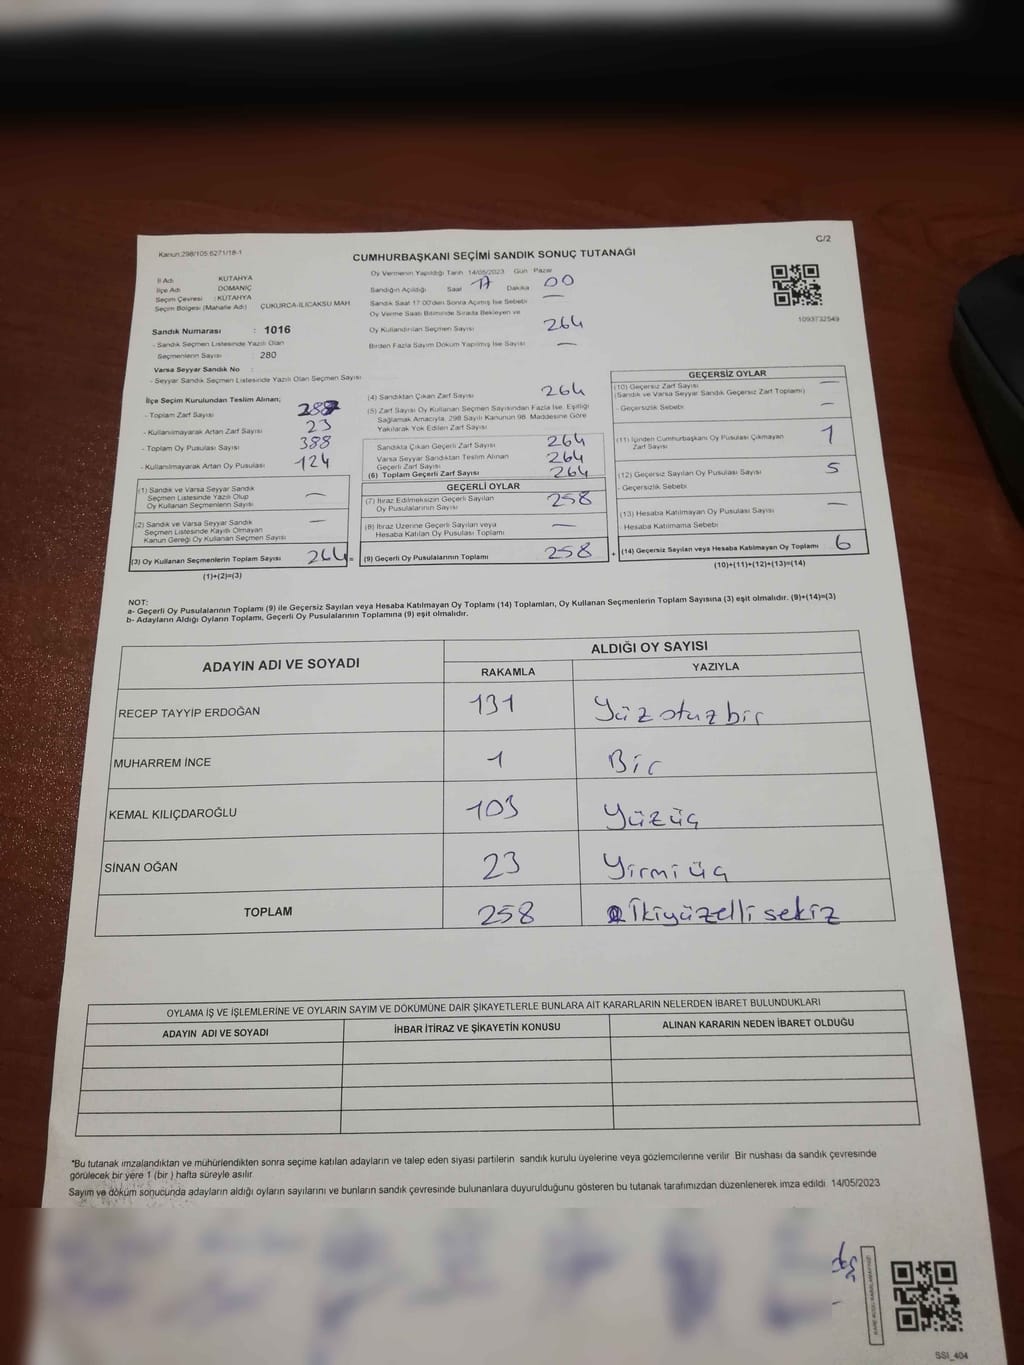 C/2
Kanun:298/105;6271/18-1
CUMHURBAŞKANI SEÇİMİ SANDIK SONUÇ TUTANAĞI
İl Adı : KÜTAHYA
İlçe Adı : DOMANİÇ
Seçim Çevresi : KÜTAHYA
Seçim Bölgesi (Mahalle Adı) : ÇUKURCA-ILICAKSU MAH
Sandık Numarası : 1016
- Sandık Seçmen Listesinde Yazılı Olan
Seçmenlerin Sayısı : 280
Varsa Seyyar Sandık No :
- Seyyar Sandık Seçmen Listesinde Yazılı Olan Seçmen Sayısı
Oy Vermenin Yapıldığı Tarih 14/05/2023 Gün Pazar
Sandığın Açıldığı Saat 17 Dakika 00
Sandık Saat 17:00'den Sonra Açılmış İse Sebebi —
Oy Verme Saati Bitiminde Sırada Bekleyen ve
Oy Kullandırılan Seçmen Sayısı 264
Birden Fazla Sayım Döküm Yapılmış İse Sayısı —
1093732549
İlçe Seçim Kurulundan Teslim Alınan;
- Toplam Zarf Sayısı
- Kullanılmayarak Artan Zarf Sayısı 23
- Toplam Oy Pusulası Sayısı 388
- Kullanılmayarak Artan Oy Pusulası 124
(1) Sandık ve Varsa Seyyar Sandık
Seçmen Listesinde Yazılı Olup
Oy Kullanan Seçmenlerin Sayısı —
(2) Sandık ve Varsa Seyyar Sandık
Seçmen Listesinde Kayıtlı Olmayan
Kanun Gereği Oy Kullanan Seçmen Sayısı —
(3) Oy Kullanan Seçmenlerin Toplam Sayısı 264 =
(1)+(2)=(3)
(4) Sandıktan Çıkan Zarf Sayısı 264
(5) Zarf Sayısı Oy Kullanan Seçmen Sayısından Fazla İse, Eşitliği
Sağlamak Amacıyla, 298 Sayılı Kanunun 98. Maddesine Göre
Yakılarak Yok Edilen Zarf Sayısı
Sandıkta Çıkan Geçerli Zarf Sayısı 264
Varsa Seyyar Sandıktan Teslim Alınan
Geçerli Zarf Sayısı 264
(6) Toplam Geçerli Zarf Sayısı 264
GEÇERLİ OYLAR
(7) İtiraz Edilmeksizin Geçerli Sayılan
Oy Pusulalarının Sayısı 258
(8) İtiraz Üzerine Geçerli Sayılan veya
Hesaba Katılan Oy Pusulası Toplamı —
(9) Geçerli Oy Pusulalarının Toplamı 258 +
GEÇERSİZ OYLAR
(10) Geçersiz Zarf Sayısı —
(Sandık ve Varsa Seyyar Sandık Geçersiz Zarf Toplamı)
- Geçersizlik Sebebi —
(11) İçinden Cumhurbaşkanı Oy Pusulası Çıkmayan
Zarf Sayısı 1
(12) Geçersiz Sayılan Oy Pusulası Sayısı 5
- Geçersizlik Sebebi
(13) Hesaba Katılmayan Oy Pusulası Sayısı —
- Hesaba Katılmama Sebebi
(14) Geçersiz Sayılan veya Hesaba Katılmayan Oy Toplamı 6
(10)+(11)+(12)+(13)=(14)
NOT:
a- Geçerli Oy Pusulalarının Toplamı (9) ile Geçersiz Sayılan veya Hesaba Katılmayan Oy Toplamı (14) Toplamları, Oy Kullanan Seçmenlerin Toplam Sayısına (3) eşit olmalıdır. (9)+(14)=(3)
b- Adayların Aldığı Oyların Toplamı, Geçerli Oy Pusulalarının Toplamına (9) eşit olmalıdır.
ADAYIN ADI VE SOYADI ALDIĞI OY SAYISI
RAKAMLA YAZIYLA
RECEP TAYYİP ERDOĞAN 131 Yüzotuzbir
MUHARREM İNCE 1 Bir
KEMAL KILIÇDAROĞLU 103 Yüzüç
SİNAN OĞAN 23 Yirmiüç
TOPLAM 258 İkiyüzellisekiz
OYLAMA İŞ VE İŞLEMLERİNE VE OYLARIN SAYIM VE DÖKÜMÜNE DAİR ŞİKAYETLERLE BUNLARA AİT KARARLARIN NELERDEN İBARET BULUNDUKLARI
ADAYIN ADI VE SOYADI İHBAR İTİRAZ VE ŞİKAYETİN KONUSU ALINAN KARARIN NEDEN İBARET OLDUĞU
*Bu tutanak imzalandıktan ve mühürlendikten sonra seçime katılan adayların ve talep eden siyasi partilerin sandık kurulu üyelerine veya gözlemcilerine verilir. Bir nüshası da sandık çevresinde
görülecek bir yere 1 (bir ) hafta süreyle asılır.
Sayım ve döküm sonucunda adayların aldığı oyların sayılarını ve bunların sandık çevresinde bulunanlara duyurulduğunu gösteren bu tutanak tarafımızdan düzenlenerek imza edildi. 14/05/2023
SSI_404